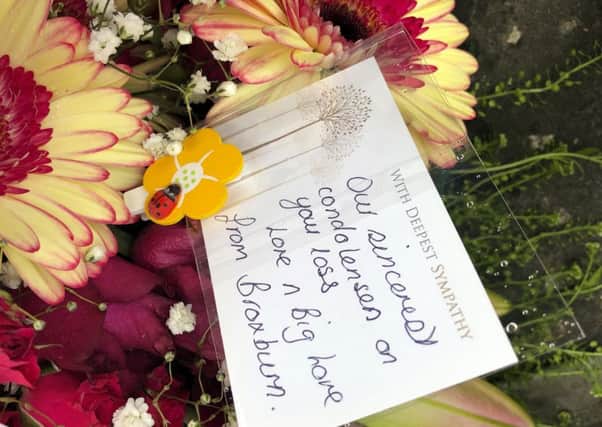 WITH DEEPEST SYMPATHY
Our sincerest
condolenses on
your loss
Love n Big Love
from Broxburn.